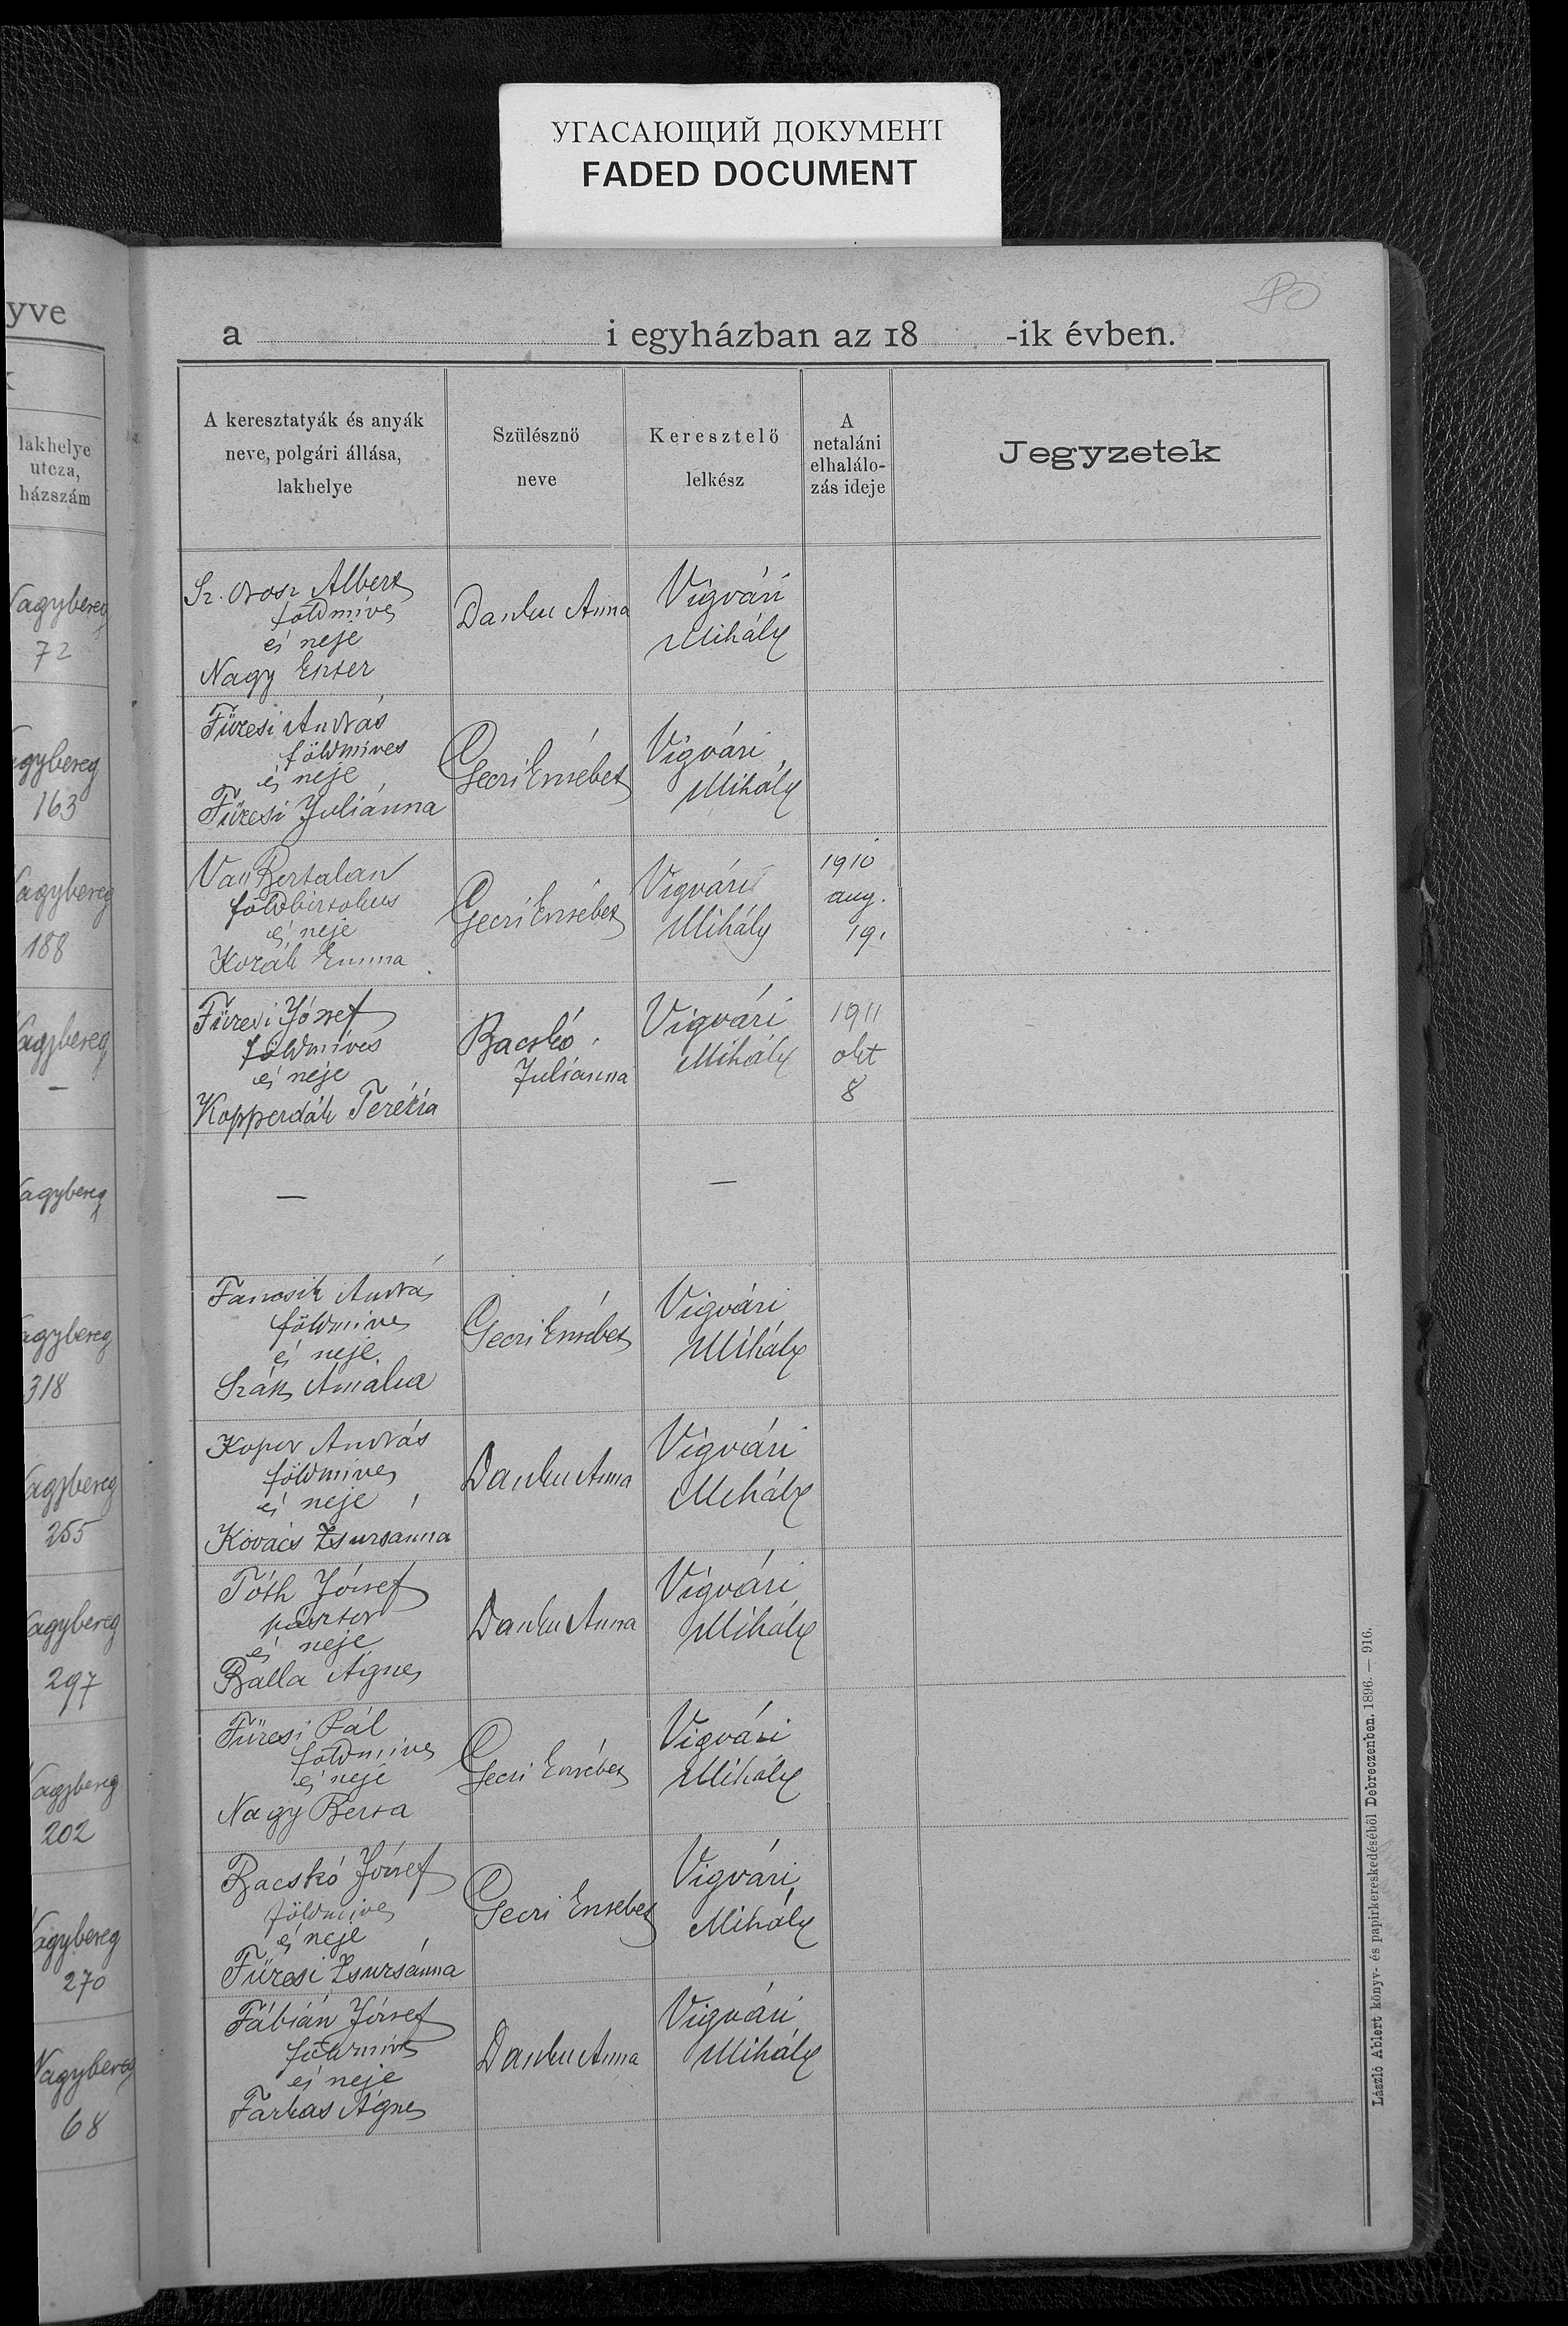 УГАСАЮЩИЙ ДОКУМЕНТ
FADED DOCUMENT
80
yve
a i egyházban az 18 -ik évben.
lakhelye
utcza,
házszám
A keresztatyák és anyák
neve, polgári állása,
lakhelye
Szülésznő
neve
Keresztelő
lelkész
A
netaláni
elhalálo-
zás ideje
Jegyzetek
Nagybereg
72
Sz. Orosz Albert
földmíves
és neje
Nagy Eszter
Danku Anna
Vigvári
Mihály
Nagybereg
163
Füzesi András
földmíves
és neje
Füzesi Juliánna
Geczi Erzsébet
Vigvári
Mihály
Nagybereg
188
Vass Bertalan
földbirtokus
és neje
Kozák Emma
Geczi Erzsébet
Vigvári
Mihály
1910
aug.
19.
Nagybereg
—
Füzesi József
földmíves
és neje
Kopperdák Terézia
Bacskó
Juliánna
Vigvári
Mihály
1911
okt
8
Nagybereg
—
—
Nagybereg
318
Fancsik András
földmíves
és neje
Amália
Geczi Erzsébet
Vigvári
Mihály
Nagybereg
255
András
földmíves
és neje
Kovács Zsuzsanna
Danku Anna
Vigvári
Mihály
Nagybereg
297
Tóth József
pásztor
és neje
Balla Ágnes
Danku Anna
Vigvári
Mihály
Nagybereg
202
Füzesi Pál
földmíves
és neje
Nagy Berta
Geczi Erzsébet
Vigvári
Mihály
Nagybereg
270
Bacskó József
földmíves
és neje
Füzesi Zsuzsánna
Geczi Erzsebet
Vigvári
Mihály
Nagybereg
68
Fábián József
földmíves
és neje
Farkas Ágnes
Danku Anna
Vigvári
Mihály
László Albert könyv- és papirkereskedéséből Debreczenben. 1896. — 916.